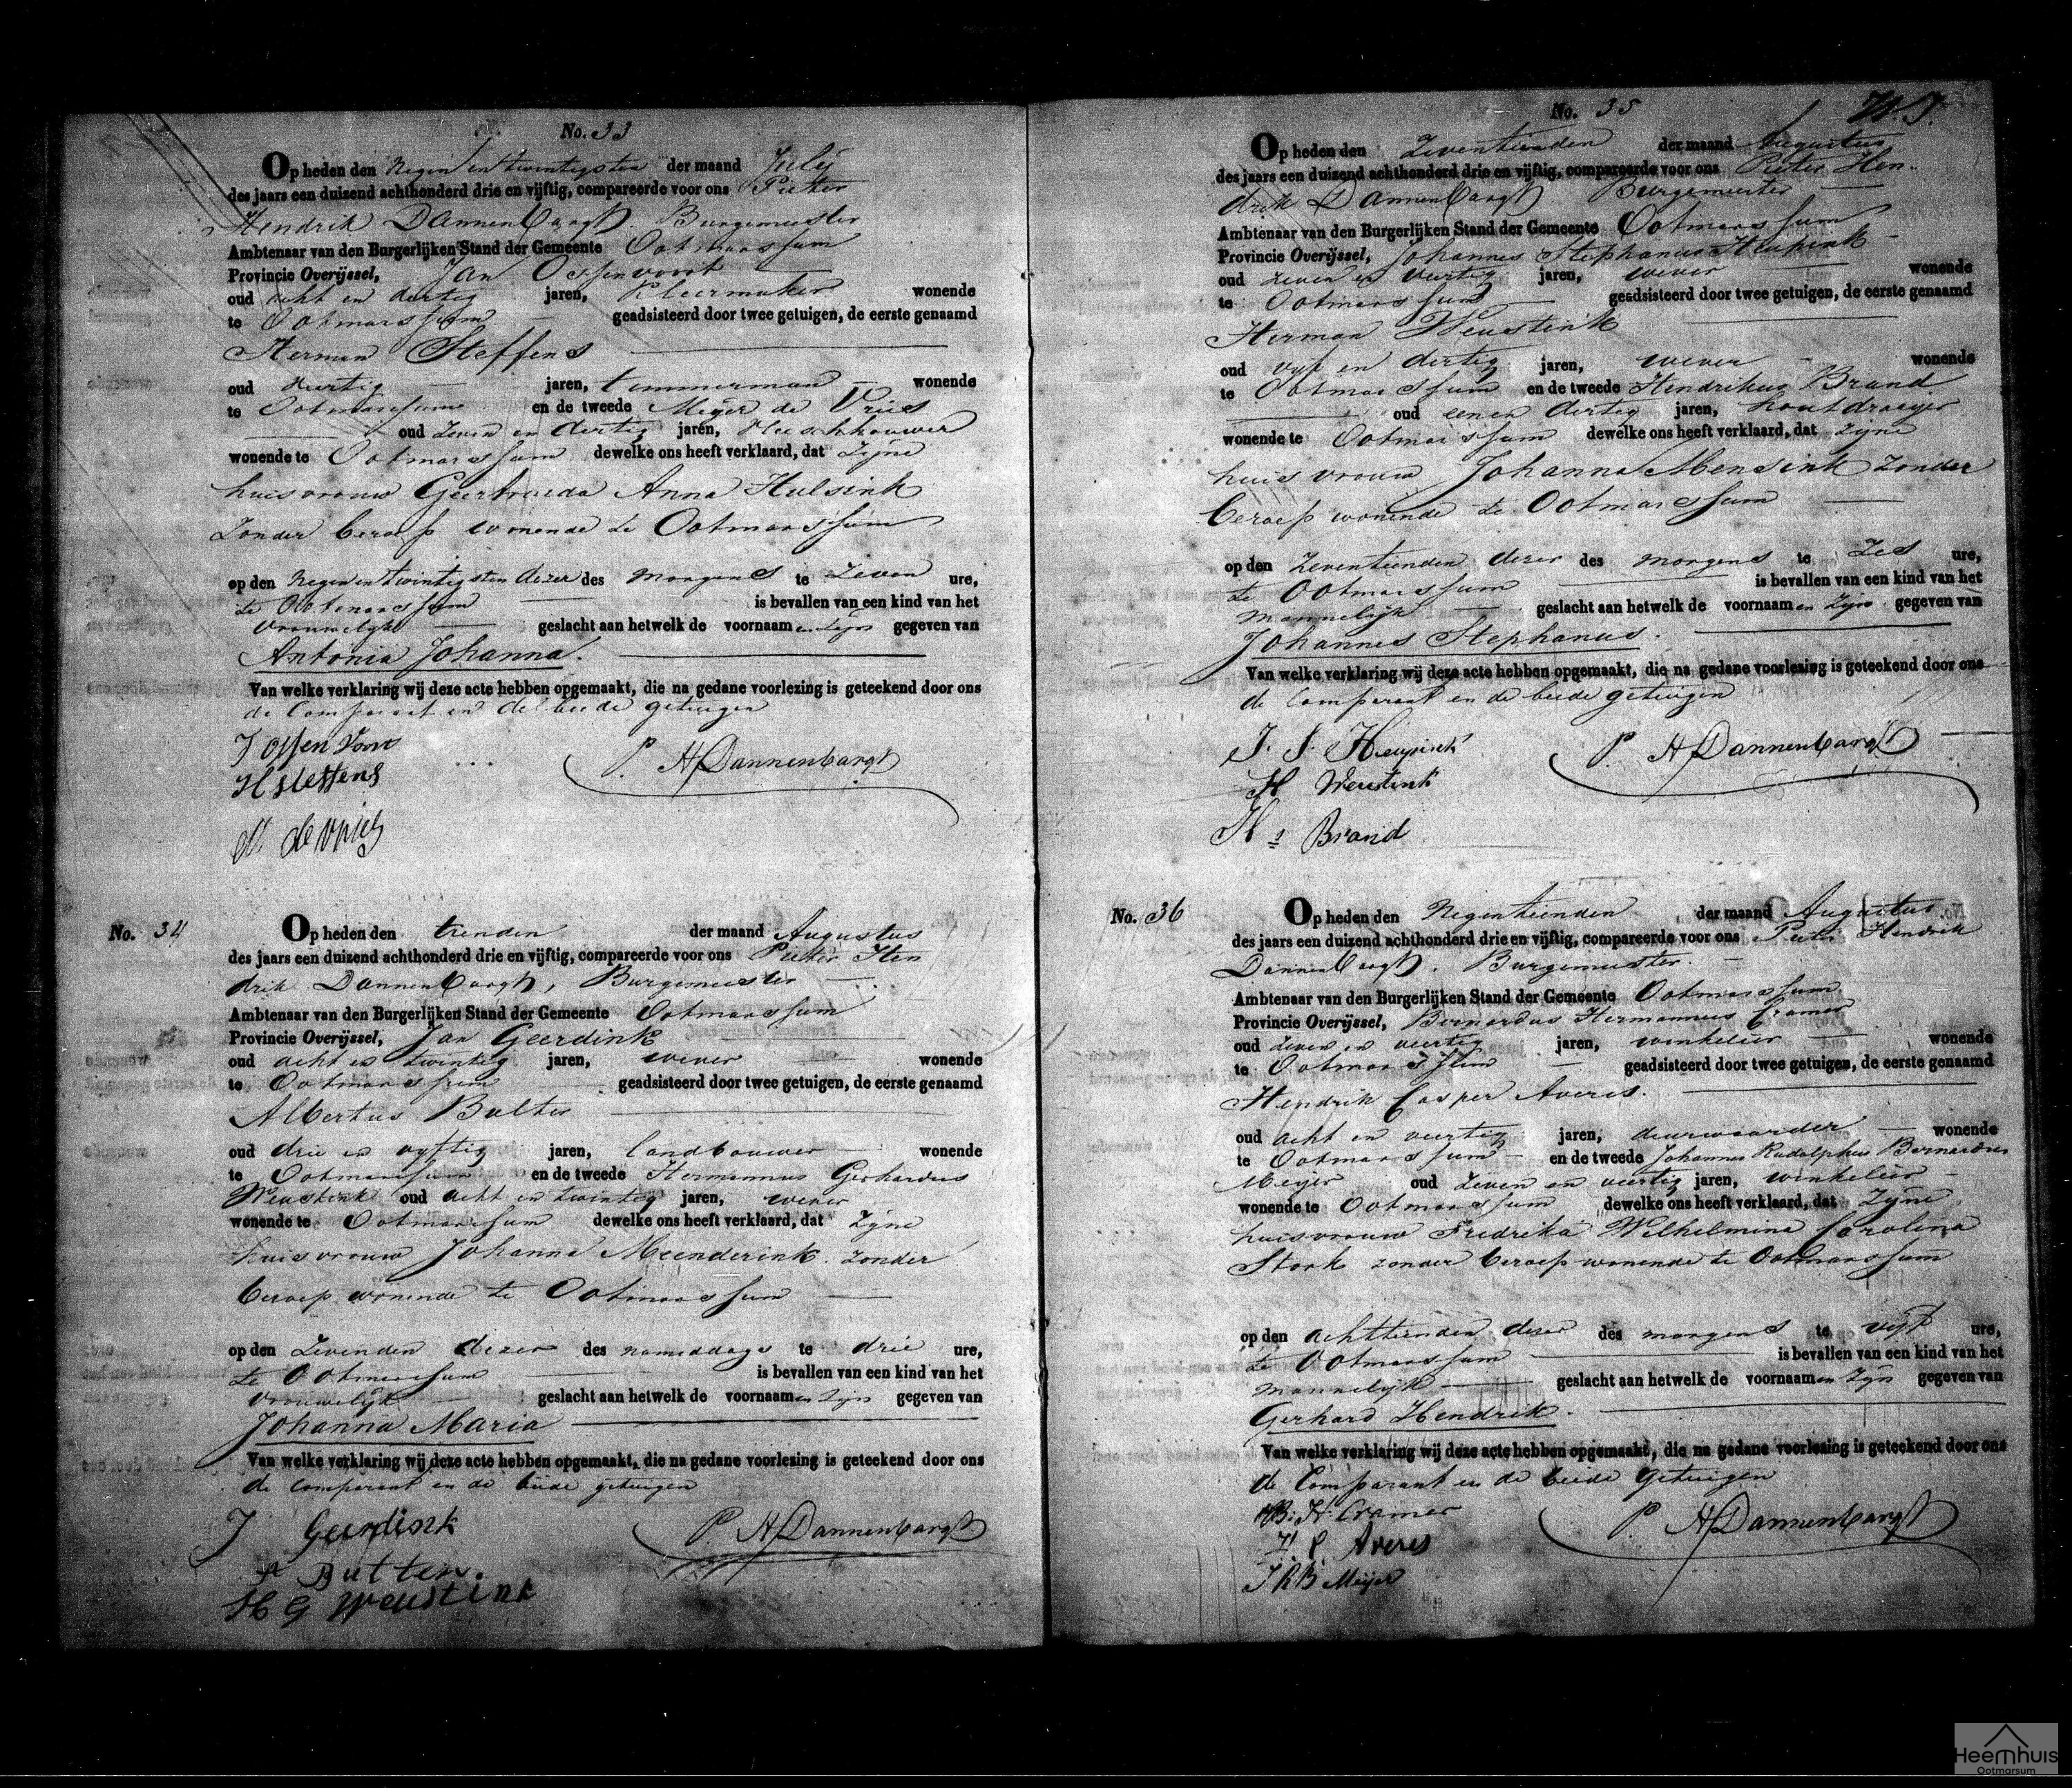 No. 33
Op heden den Negen en twintigsten der maand July
des jaars een duizend achthonderd drie en vijftig, compareerde voor ons Pieter
Hendrik Dannenbargh Burgemeester
Ambtenaar van den Burgerlijken Stand der Gemeente Ootmarssum
Provincie Overijssel, Jan Ossenvoort
oud acht en dertig jaren, Kleermaker wonende
te Ootmarssum geadsisteerd door twee getuigen, de eerste genaamd
Herman Steffens
oud veertig jaren, timmerman wonende
te Ootmarssum en de tweede Meijer de Vries
oud zeven en dertig jaren, Vleeschhouwer
wonende te Ootmarssum dewelke ons heeft verklaard, dat zijne
huisvrouw Geertruida Anna Hulsink
zonder beroep wonende te Ootmarssum
op den Negen en twintigsten dezer des morgens te zeven ure,
te Ootmarssum is bevallen van een kind van het
vrouwelijk geslacht aan hetwelk de voornaamen zijn gegeven van
Antonia Johanna.
Van welke verklaring wij deze acte hebben opgemaakt, die na gedane voorlezing is geteekend door ons
de Comparant en de beide getuigen
J Ossenvoort
P. H Dannenbargh
H Steffens
M. de Vries
No. 34
Op heden den tienden der maand Augustus
des jaars een duizend achthonderd drie en vijftig, compareerde voor ons Pieter Hen
drik Dannenbargh, Burgemeester
Ambtenaar van den Burgerlijken Stand der Gemeente Ootmarssum
Provincie Overijssel, Jan Geerdink
oud acht en twintig jaren, wever wonende
te Ootmarssum geadsisteerd door twee getuigen, de eerste genaamd
Albertus Bulter
oud drie en vyftig jaren, landbouwer wonende
te Ootmarssum en de tweede Hermannus Gerhardus
Weustink oud acht en twintig jaren, wever
wonende te Ootmarssum dewelke ons heeft verklaard, dat zijne
huisvrouw Johanna Meenderink zonder
beroep wonende te Ootmarssum
op den zevenden dezer des namiddags te drie ure,
te Ootmarssum is bevallen van een kind van het
vrouwelijk geslacht aan hetwelk de voornaamen zijn gegeven van
Johanna Maria
Van welke verklaring wij deze acte hebben opgemaakt, die na gedane voorlezing is geteekend door ons
de comparant en de beide getuigen
J Geerdink
P. H Dannenbargh
A Bulter.
H G Weustink
No. 35
Op heden den Zeventienden der maand Augustus
des jaars een duizend achthonderd drie en vijftig, compareerde voor ons Pieter Hen-
drik Dannenbargh Burgemeester
Ambtenaar van den Burgerlijken Stand der Gemeente Ootmarssum
Provincie Overijssel, Johannes Stephanus Heupink
oud zeven en veertig jaren, wever wonende
te Ootmarssum geadsisteerd door twee getuigen, de eerste genaamd
Herman Weustink
oud vijf en dertig jaren, wever wonende
te Ootmarssum en de tweede Hendrikus Brand
oud eenen dertig jaren, houtdraaijer
wonende te Ootmarssum dewelke ons heeft verklaard, dat zijne
huisvrouw Johanna Mensink zonder
beroep wonende te Ootmarssum
op den Zeventienden dezer des morgens te zes ure,
te Ootmarssum is bevallen van een kind van het
mannelijk geslacht aan hetwelk de voornaamen zijn gegeven van
Johannes Stephanus.
Van welke verklaring wij deze acte hebben opgemaakt, die na gedane voorlezing is geteekend door ons
de Comparant en de beide getuigen
J. S. Heupink
P. H Dannenbargh
H Weustink
Hs Brand
No. 36
Op heden den Negentienden der maand Augustus
des jaars een duizend achthonderd drie en vijftig, compareerde voor ons Pieter Hendrik
Dannenbargh. Burgemeester.
Ambtenaar van den Burgerlijken Stand der Gemeente Ootmarssum
Provincie Overijssel, Bernardus Hermannus Cramer
oud zeven en veertig jaren, winkelier wonende
te Ootmarssum geadsisteerd door twee getuigen, de eerste genaamd
Hendrik Casper Averes.
oud acht en veertig jaren, deurwaarder wonende
te Ootmarssum en de tweede Johannes Rudolphus Bernardus
Meijer oud zeven en veertig jaren, winkelier
wonende te Ootmarssum dewelke ons heeft verklaard, dat zijne
huisvrouw Fredrika Wilhelmina Carolina
Stork zonder beroep wonende te Ootmarssum
op den achttienden dezer des morgens te vijf ure,
te Ootmarssum is bevallen van een kind van het
mannelijk geslacht aan hetwelk de voornaamen zijn gegeven van
Gerhard Hendrik.
Van welke verklaring wij deze acte hebben opgemaakt, die na gedane voorlezing is geteekend door ons
de Comparant en de beide getuigen
B. H. Cramer
P. H Dannenbargh
H. C. Averes
J R B Meijer
Heemhuis
Ootmarsum